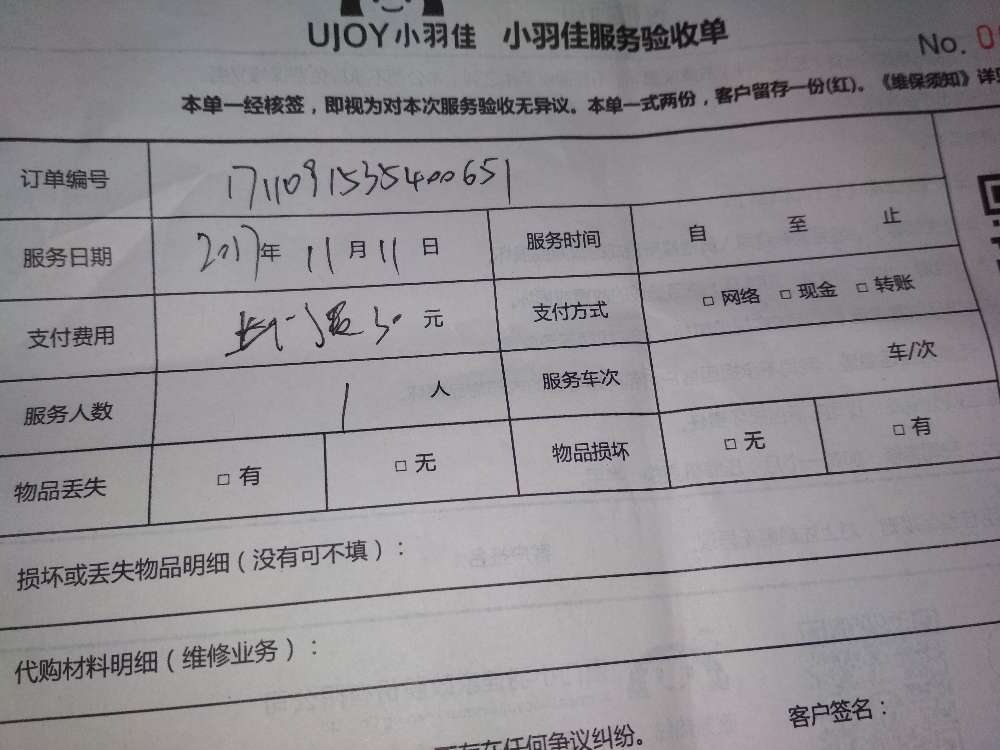 UJOY小羽佳 小羽佳服务验收单
No. 0
本单一经核签，即视为对本次服务验收无异议。本单一式两份，客户留存一份(红)。《维保须知》详
订单编号 1711091535400651
服务日期 2017年 11月 11日 服务时间 自 至 止
支付费用 元 支付方式 □ 网络 □ 现金 □ 转账
服务人数 1 人 服务车次 车/次
物品丢失 □ 有 □ 无 物品损坏 □ 无 □ 有
损坏或丢失物品明细（没有可不填）：
代购材料明细（维修业务）：
客户签名：
存在任何争议纠纷。